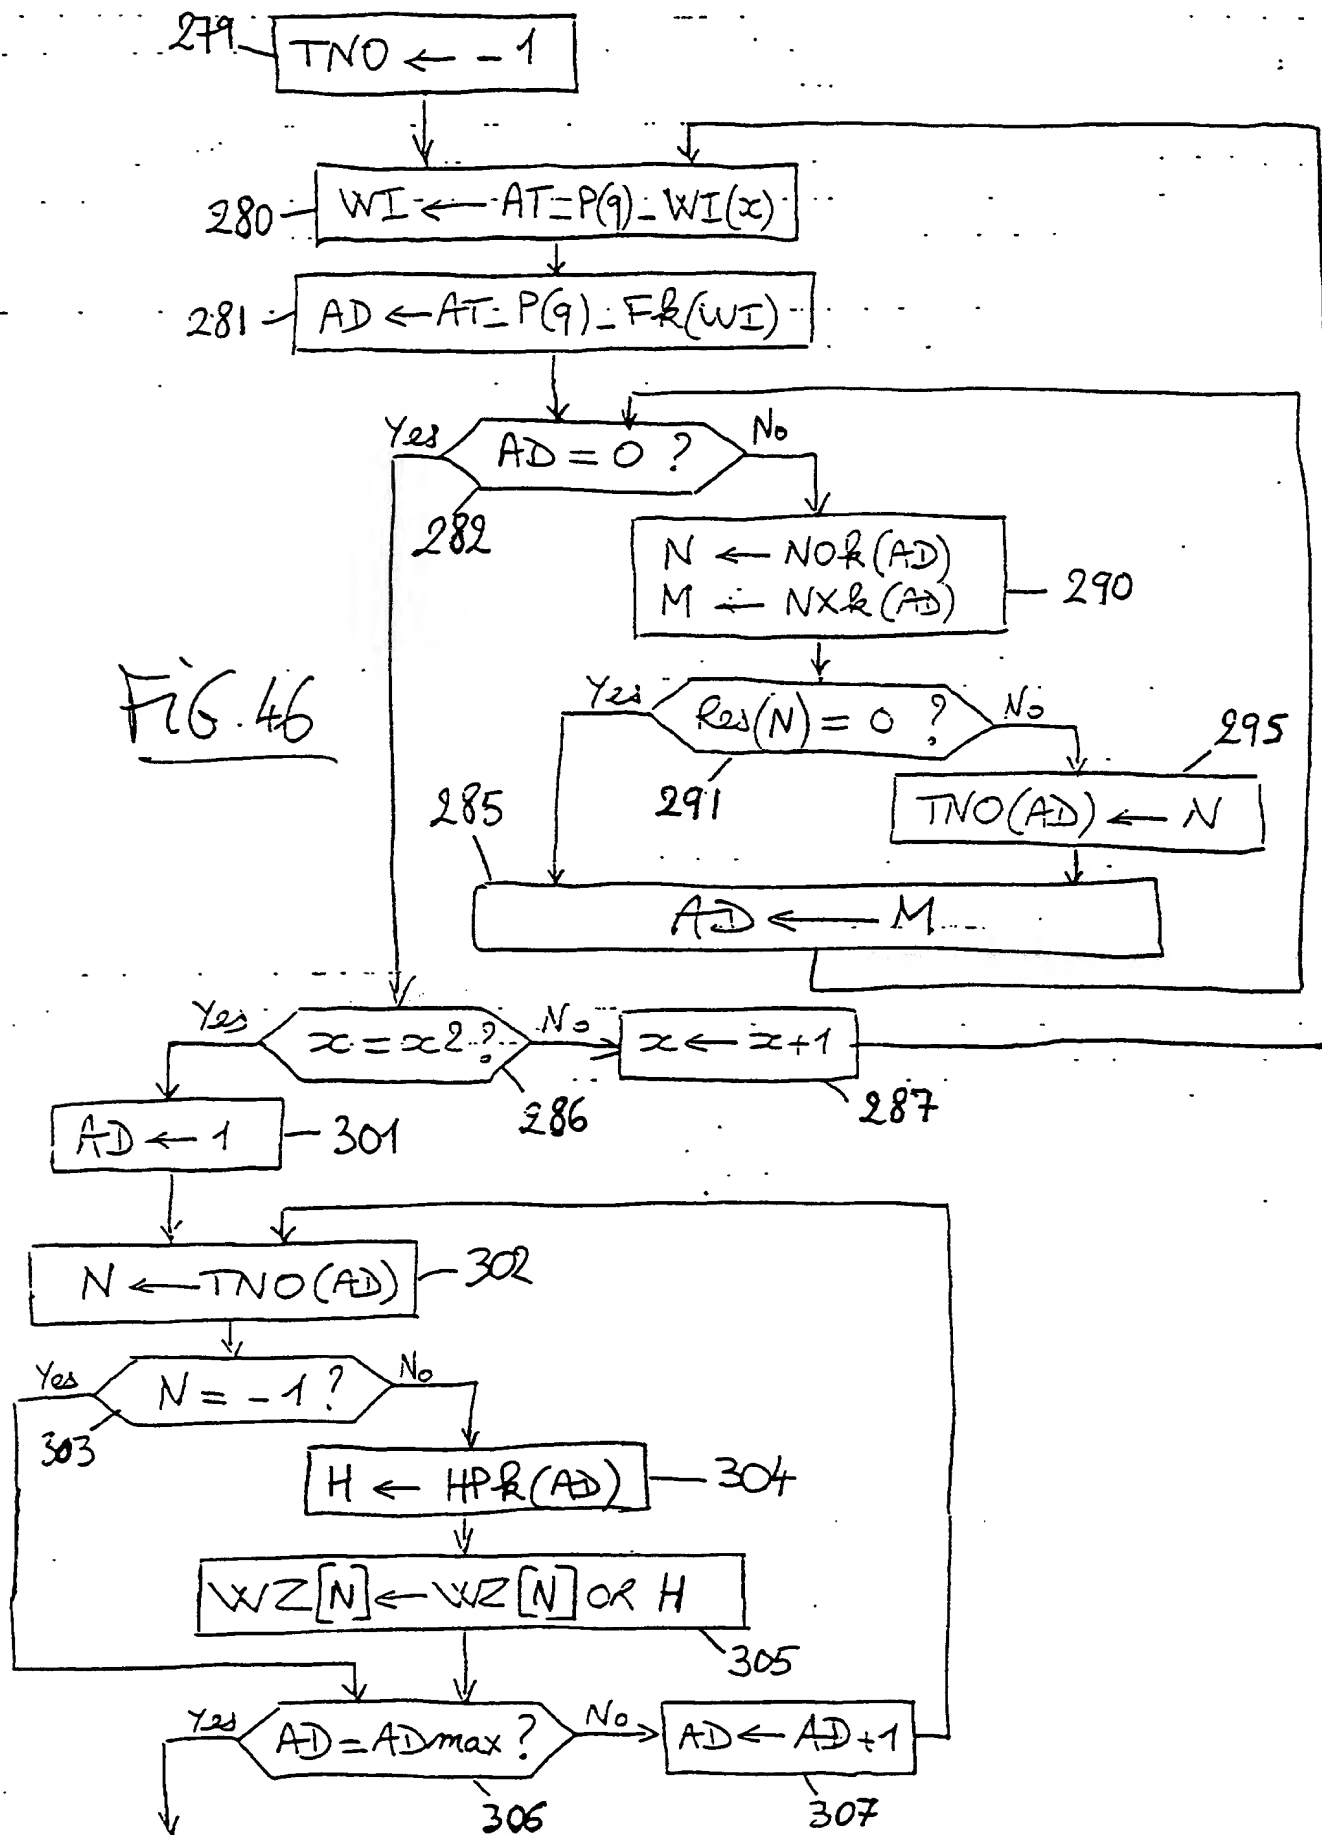 279
TNO ← - 1
280
WI ← AT_P(q)_WI(x)
281
AD ← AT_P(q)_Fk(WI)
Yes
AD = 0 ?
No
282
N ← NOk(AD)
M ← NXk(AD)
290
FIG. 46
Yes
Res(N) = 0 ?
No
291
295
TNO(AD) ← N
285
AD ← M
Yes
x = x2 ?
No
x ← x+1
286
287
AD ← 1
301
N ← TNO(AD)
302
Yes
N = - 1 ?
No
303
H ← HPk(AD)
304
WZ[N] ← WZ[N] OR H
305
Yes
AD = ADmax ?
No
AD ← AD+1
306
307